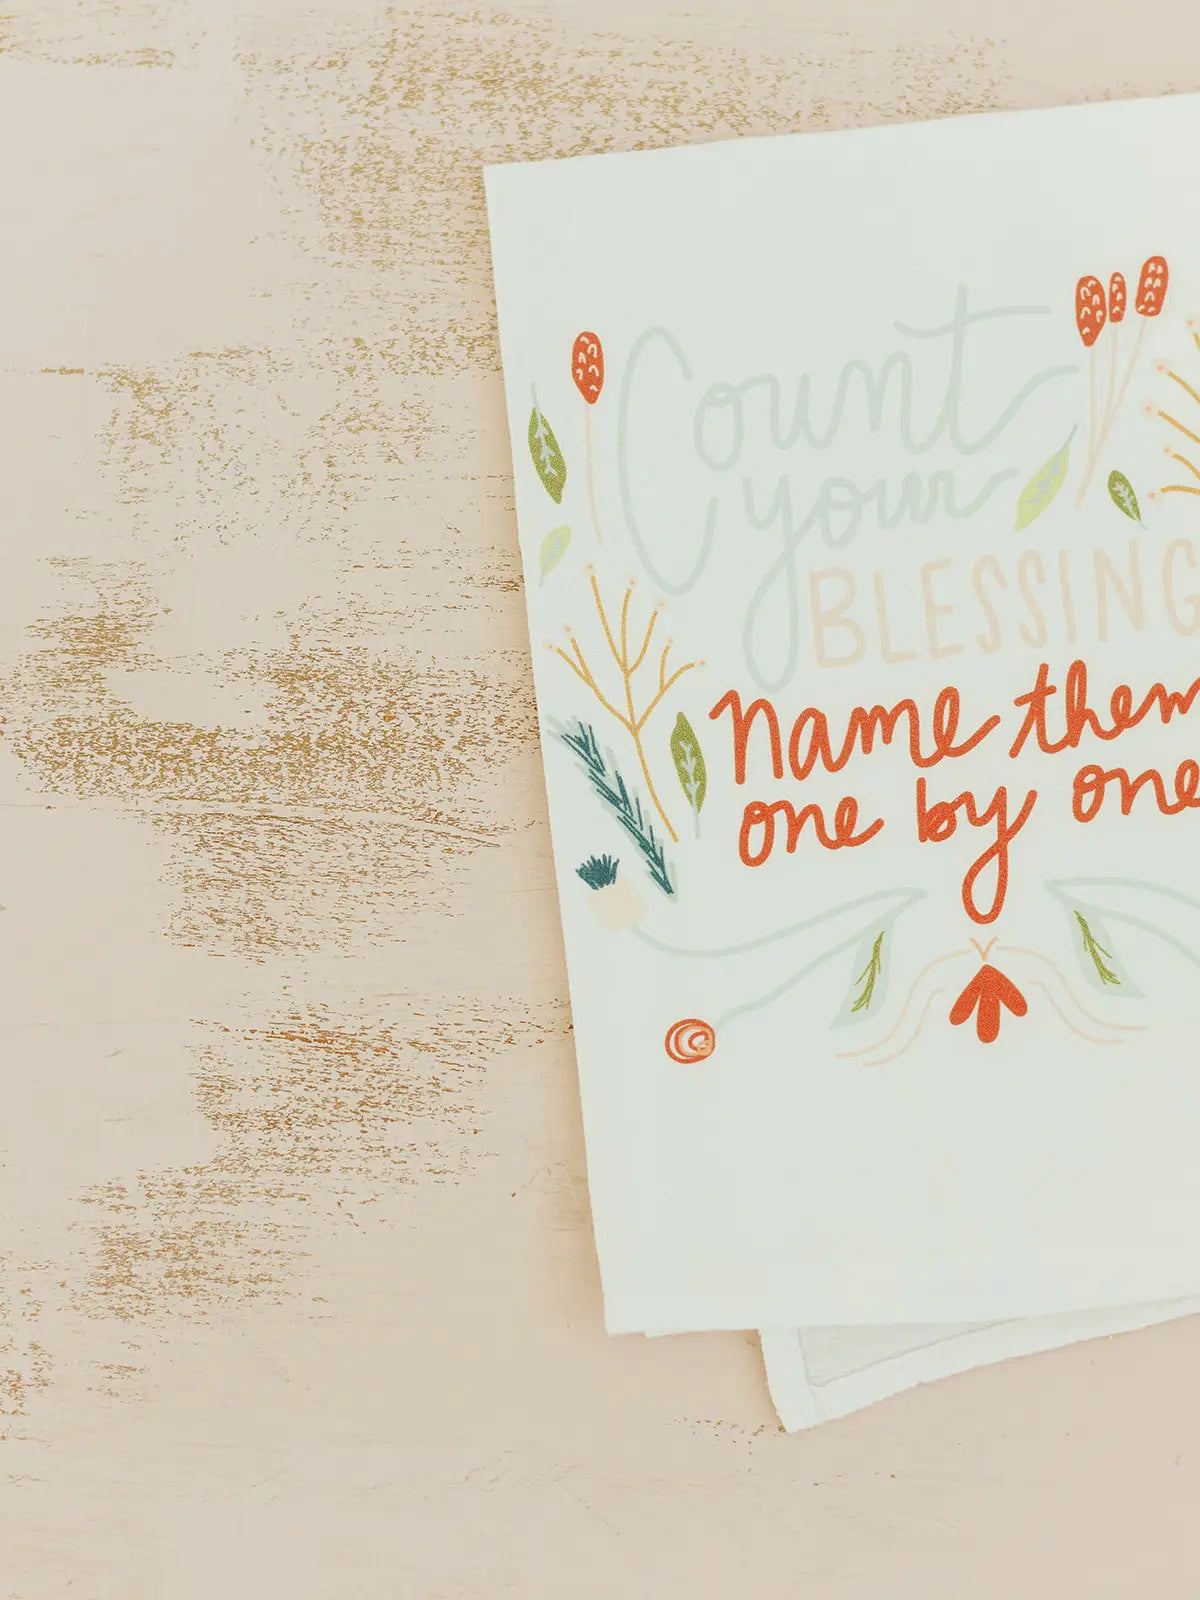 Count
your
BLESSING
Name them
one by one